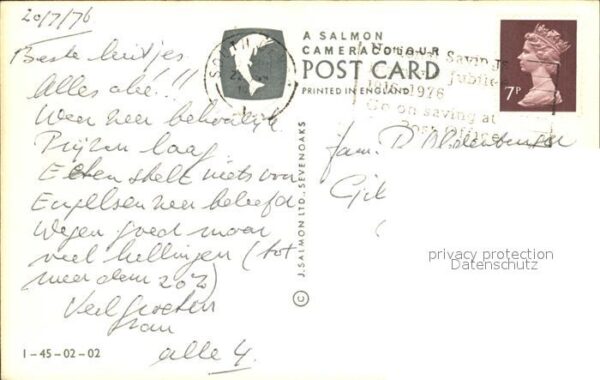 20/7/76
Beste luitjes
Alles oké!!!
Weer zeer behoorlijk
Prijzen laag
Eten stelt niets voor
Engelsen zeer beleefd
Wegen goed maar
veel hellingen (tot
meer dan 20%)
Veel groeten
van
alle 4.
1-45-02-02
A SALMON
CAMERACOLOUR
POST CARD
PRINTED IN ENGLAND
© J. SALMON LTD., SEVENOAKS
Savings
Jubilee
1976
Go on saving at
7P
Fam.
privacy protection
Datenschutz